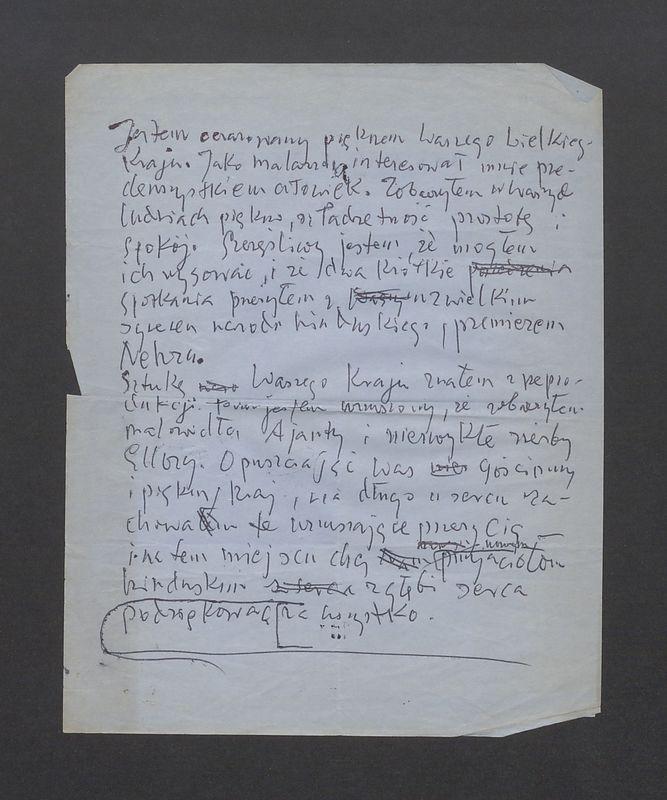 Jestem oczarowany pięknem Waszego Wielkieg-
Kraju. Jako malarza interesował mnie prze-
demszystkiem człowiek. Zobaczyłem w Waszych
ludziach piękno, szlachetność prostotę i
spokój. Szczęśliwy jestem, że mogłem
ich rysować, i że dwa krótkie
spotkania przeżyłem z wielkim
synem narodu hinduskiego, premierem
Nehru.
Sztukę Waszego Kraju znałem z repro-
dukcji. jestem wzruszony, że zobaczyłem
malowidła Ajanty i niezwykłe rzeźby
Ellory. Opuszczając Was gościnny
i piękny kraj, na długo w sercu za-
chowam te wzruszające przeżycia
i na tem miejscu chcę przyjaciołom
hinduskim z głębi serca
podziękować za wszystko.